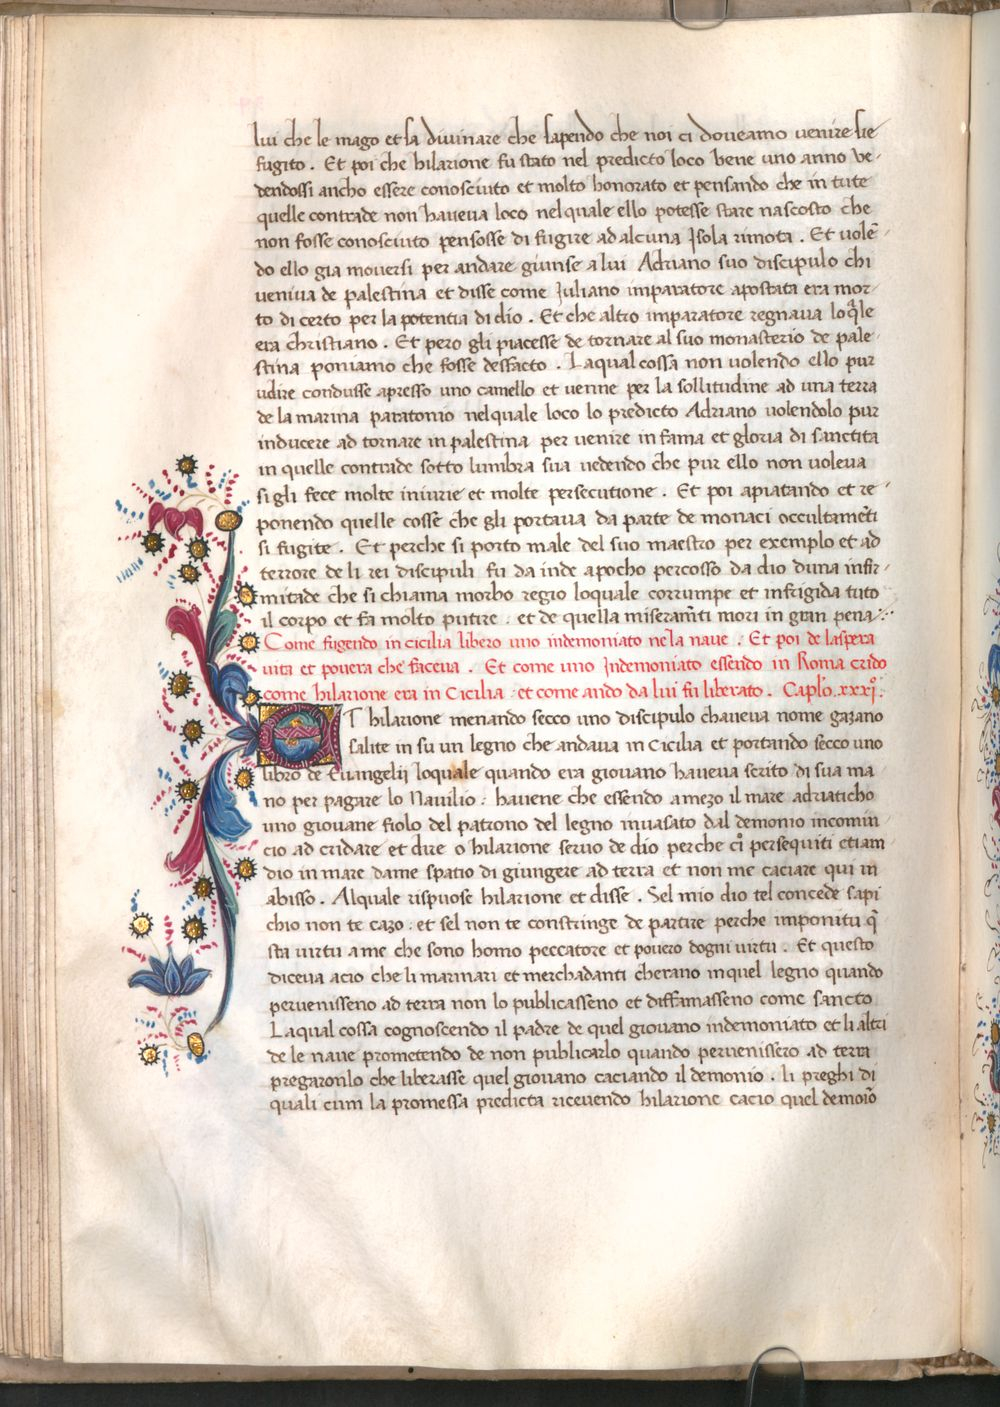 lui che le mago et sa divinare che sapendo che noi ci doveamo venire sie
fugito . Et poi che hilarione fu stato nel predicto loco bene uno anno ve-
dendossi ancho essere conosciuto et molto honorato et pensando che in tute
quelle contrade non haveva loco nelquale ello potesse stare nascosto che
non fosse conosciuto pensosse di fugire ad alcuna Isola rimota . Et volē-
do ello gia moversi per andare giunse a lui Adriano suo discipulo chi
veniva de palestina et disse come Iuliano imparatore apostata era mor-
to di certo per la potentia di dio . Et che altro imparatore regnava loq̄le
era christiano . Et pero gli piacesse de tornare al suo monasterio de pale-
stina poniamo che fosse desfacto . Laqual cossa non volendo ello pur
udire condusse apresso uno camello et venne per la sollitudine ad una terra
de la marina paratonio nelquale loco lo predicto Adriano volendolo pur
inducere ad tornare in palestina per venire in fama et gloria di sanctita
in quelle contrade sotto lumbra sua vedendo che pur ello non voleva
si gli fece molte iniurie et molte persecutione . Et poi apiatando et re-
ponendo quelle cosse che gli portava da parte de monaci occultamēti
si fugite . Et perche si porto male del suo maestro per exemplo et ad
terrore de li rei discipuli fu da inde apocho percosso da dio duna infir-
mitade che si chiama morbo regio loquale corrumpe et infrigida tuto
il corpo et fa molto putire . et de quella miseram̄ti mori in gran pena .
Come fugendo in cicilia libero uno indemoniato ne la nave . Et poi de laspera
vita et povera che faceva . Et come uno Indemoniato essendo in Roma crido
come hilarione era in Cicilia . et come ando da lui fu liberato . Caplo. xxxi.
ET hilarione menando secco uno discipulo chaveva nome gazano
salite in su un legno che andava in Cicilia et portando secco uno
libro de Evangelij loquale quando era giovano haveva scrito di sua ma
no per pagare lo Navilio . havene che essendo a mezo il mare adriaticho
uno giovane fiolo del patrono del legno invasato dal demonio incomin
cio ad cridare et dire o hilarione servo de dio perche cī persequiti etiam
dio in mare dame spatio di giungere ad terra et non me caciare qui in
abisso . Alquale rispuose hilarione et disse . Sel mio dio tel concede sapi
chio non te cazo . et sel non te constringe de partire perche imponitu q̄
sta virtu a me che sono homo peccatore et povero dogni virtu . Et questo
diceva acio che li marinari et merchadanti cherano in quel legno quando
pervenisseno ad terra non lo publicasseno et diffamasseno come sancto
Laqual cossa cognoscendo il padre de quel giovano indemoniato et li altri
de le nave prometendo de non publicarlo quando pervenissero ad terra
pregaronlo che liberasse quel giovano caciando il demonio . li preghi di
quali cum la promessa predicta ricevendo hilarione cacio quel demoīo